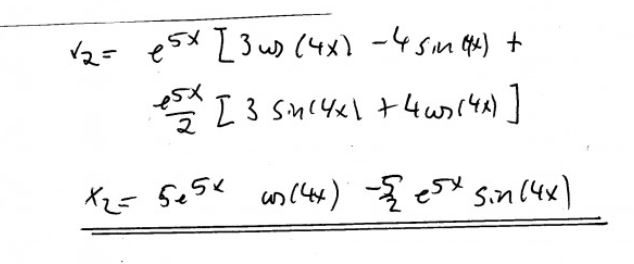 r2 = e^5x [3 cos (4x) - 4 sin (4x) +
e^5x/2 [3 sin (4x) + 4 cos (4x)]
x2 = 5e^5x cos (4x) - 5/2 e^5x sin (4x)